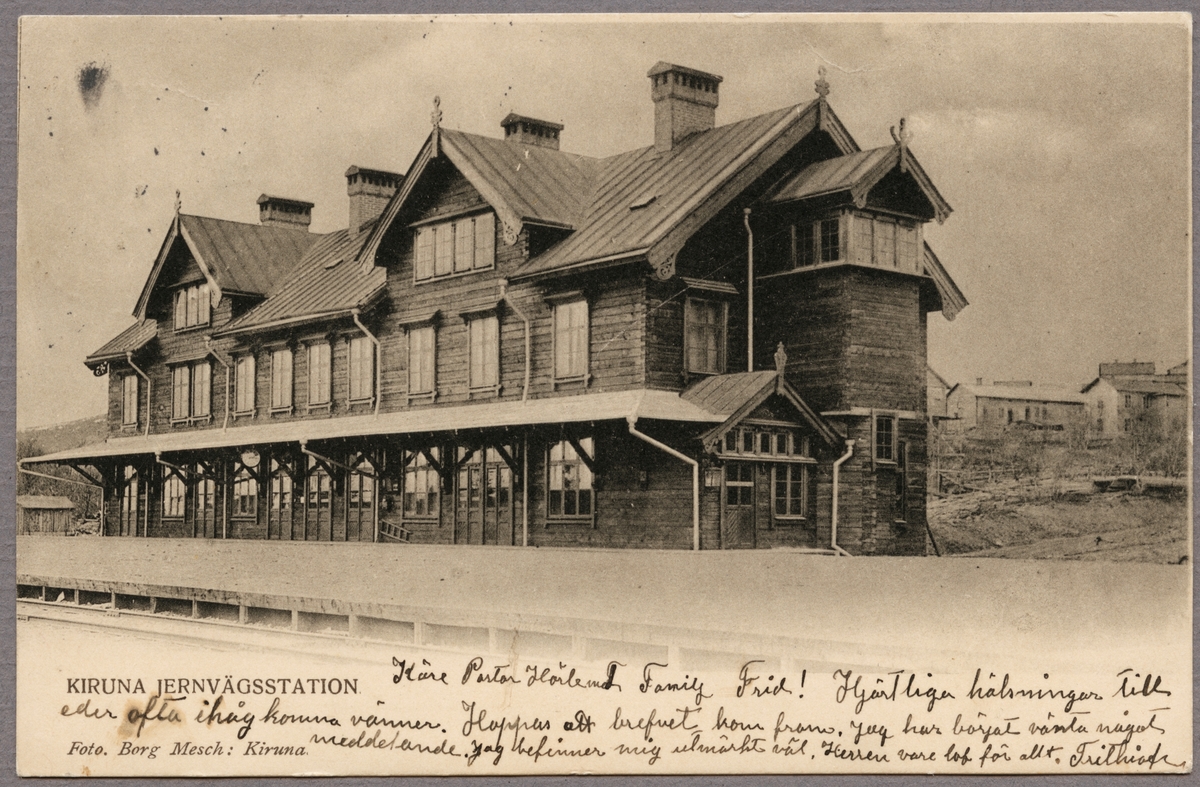 KIRUNA JERNVÄGSSTATION.
Käre Pastor Hörlemd Family Frid! Hjärtliga hälsningar till
eder ofta ihågkomna vänner. Hoppas att brefvet kom fram. Jag har börjat vänta något
meddelande. Jag befinner mig utmärkt väl. Herren vare lof för allt. Frithiof
Foto. Borg Mesch: Kiruna.